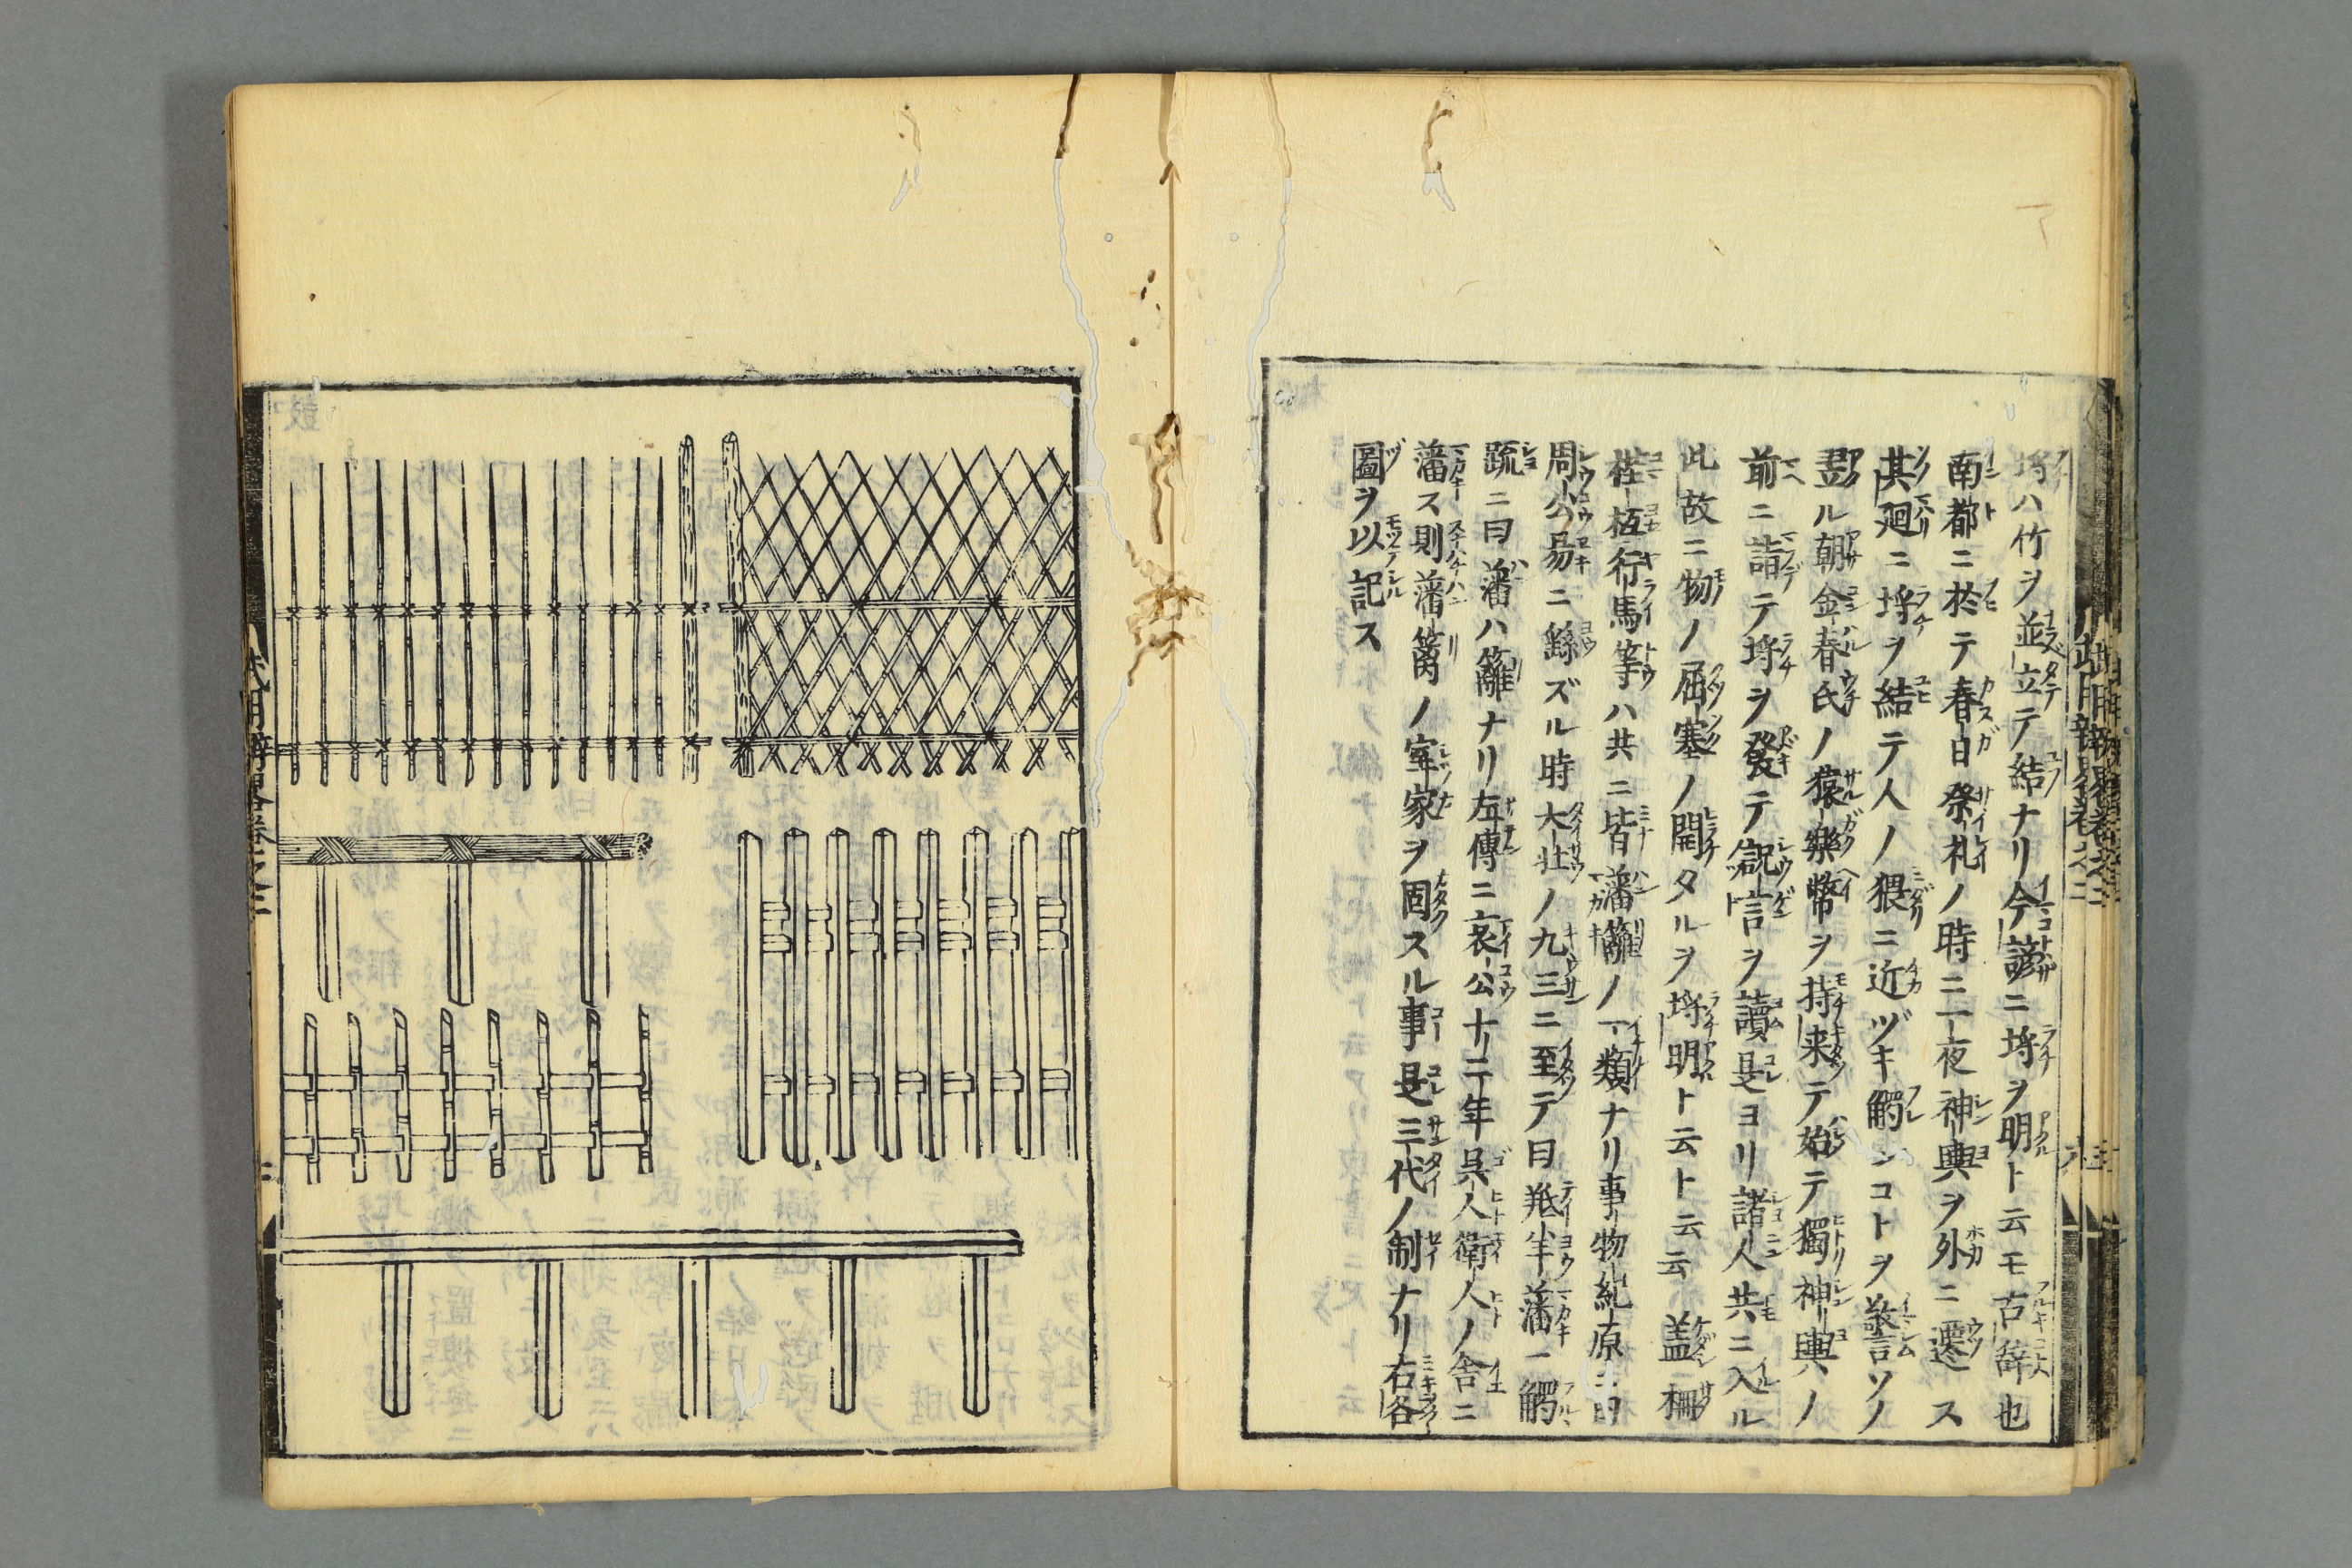 埒ハ竹ヲ並立テ結ナリ今諺ニ埒ヲ明ト云モ古辞也
南都ニ於テ春日祭礼ノ時ニ一夜神輿ヲ外ニ遷ス
其廻ニ埒ヲ結テ人ノ猥ニ近ヅキ觸ンコトヲ警ソノ
翌ル朝金春氏ノ猿樂幣ヲ持来テ始テ獨神輿ノ
前ニ詣テ埒ヲ發テ祝言ヲ讀是ヨリ諸人共ニ入ル
此故ニ物ノ屈塞ノ開タルヲ埒明ト云ト云云盖柵
梐枑行馬等ハ共ニ皆藩籬ノ一類ナリ事物紀原ニ曰
周公易ニ繇ズル時大壮ノ九三ニ至テ曰羝羊藩ニ觸
疏ニ曰藩ハ籬ナリ左傳ニ哀公十二年呉人衛人ノ舎ニ
藩ス則藩籬ノ室家ヲ固スル事是三代ノ制ナリ右各
圖ヲ以記ス